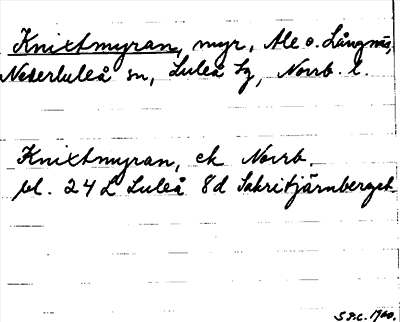 Knixtmyran, myr, Ale o. Långnäs,
Nederluleå sn, Luleå tg, Norrb. l.
Knixtmyran, ek Norrb.
bl. 24 L Luleå 8d Sakritjärnberget
S P.C. 1960.